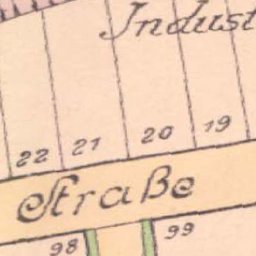 Indust
22 21 20 19
Straße
98 99